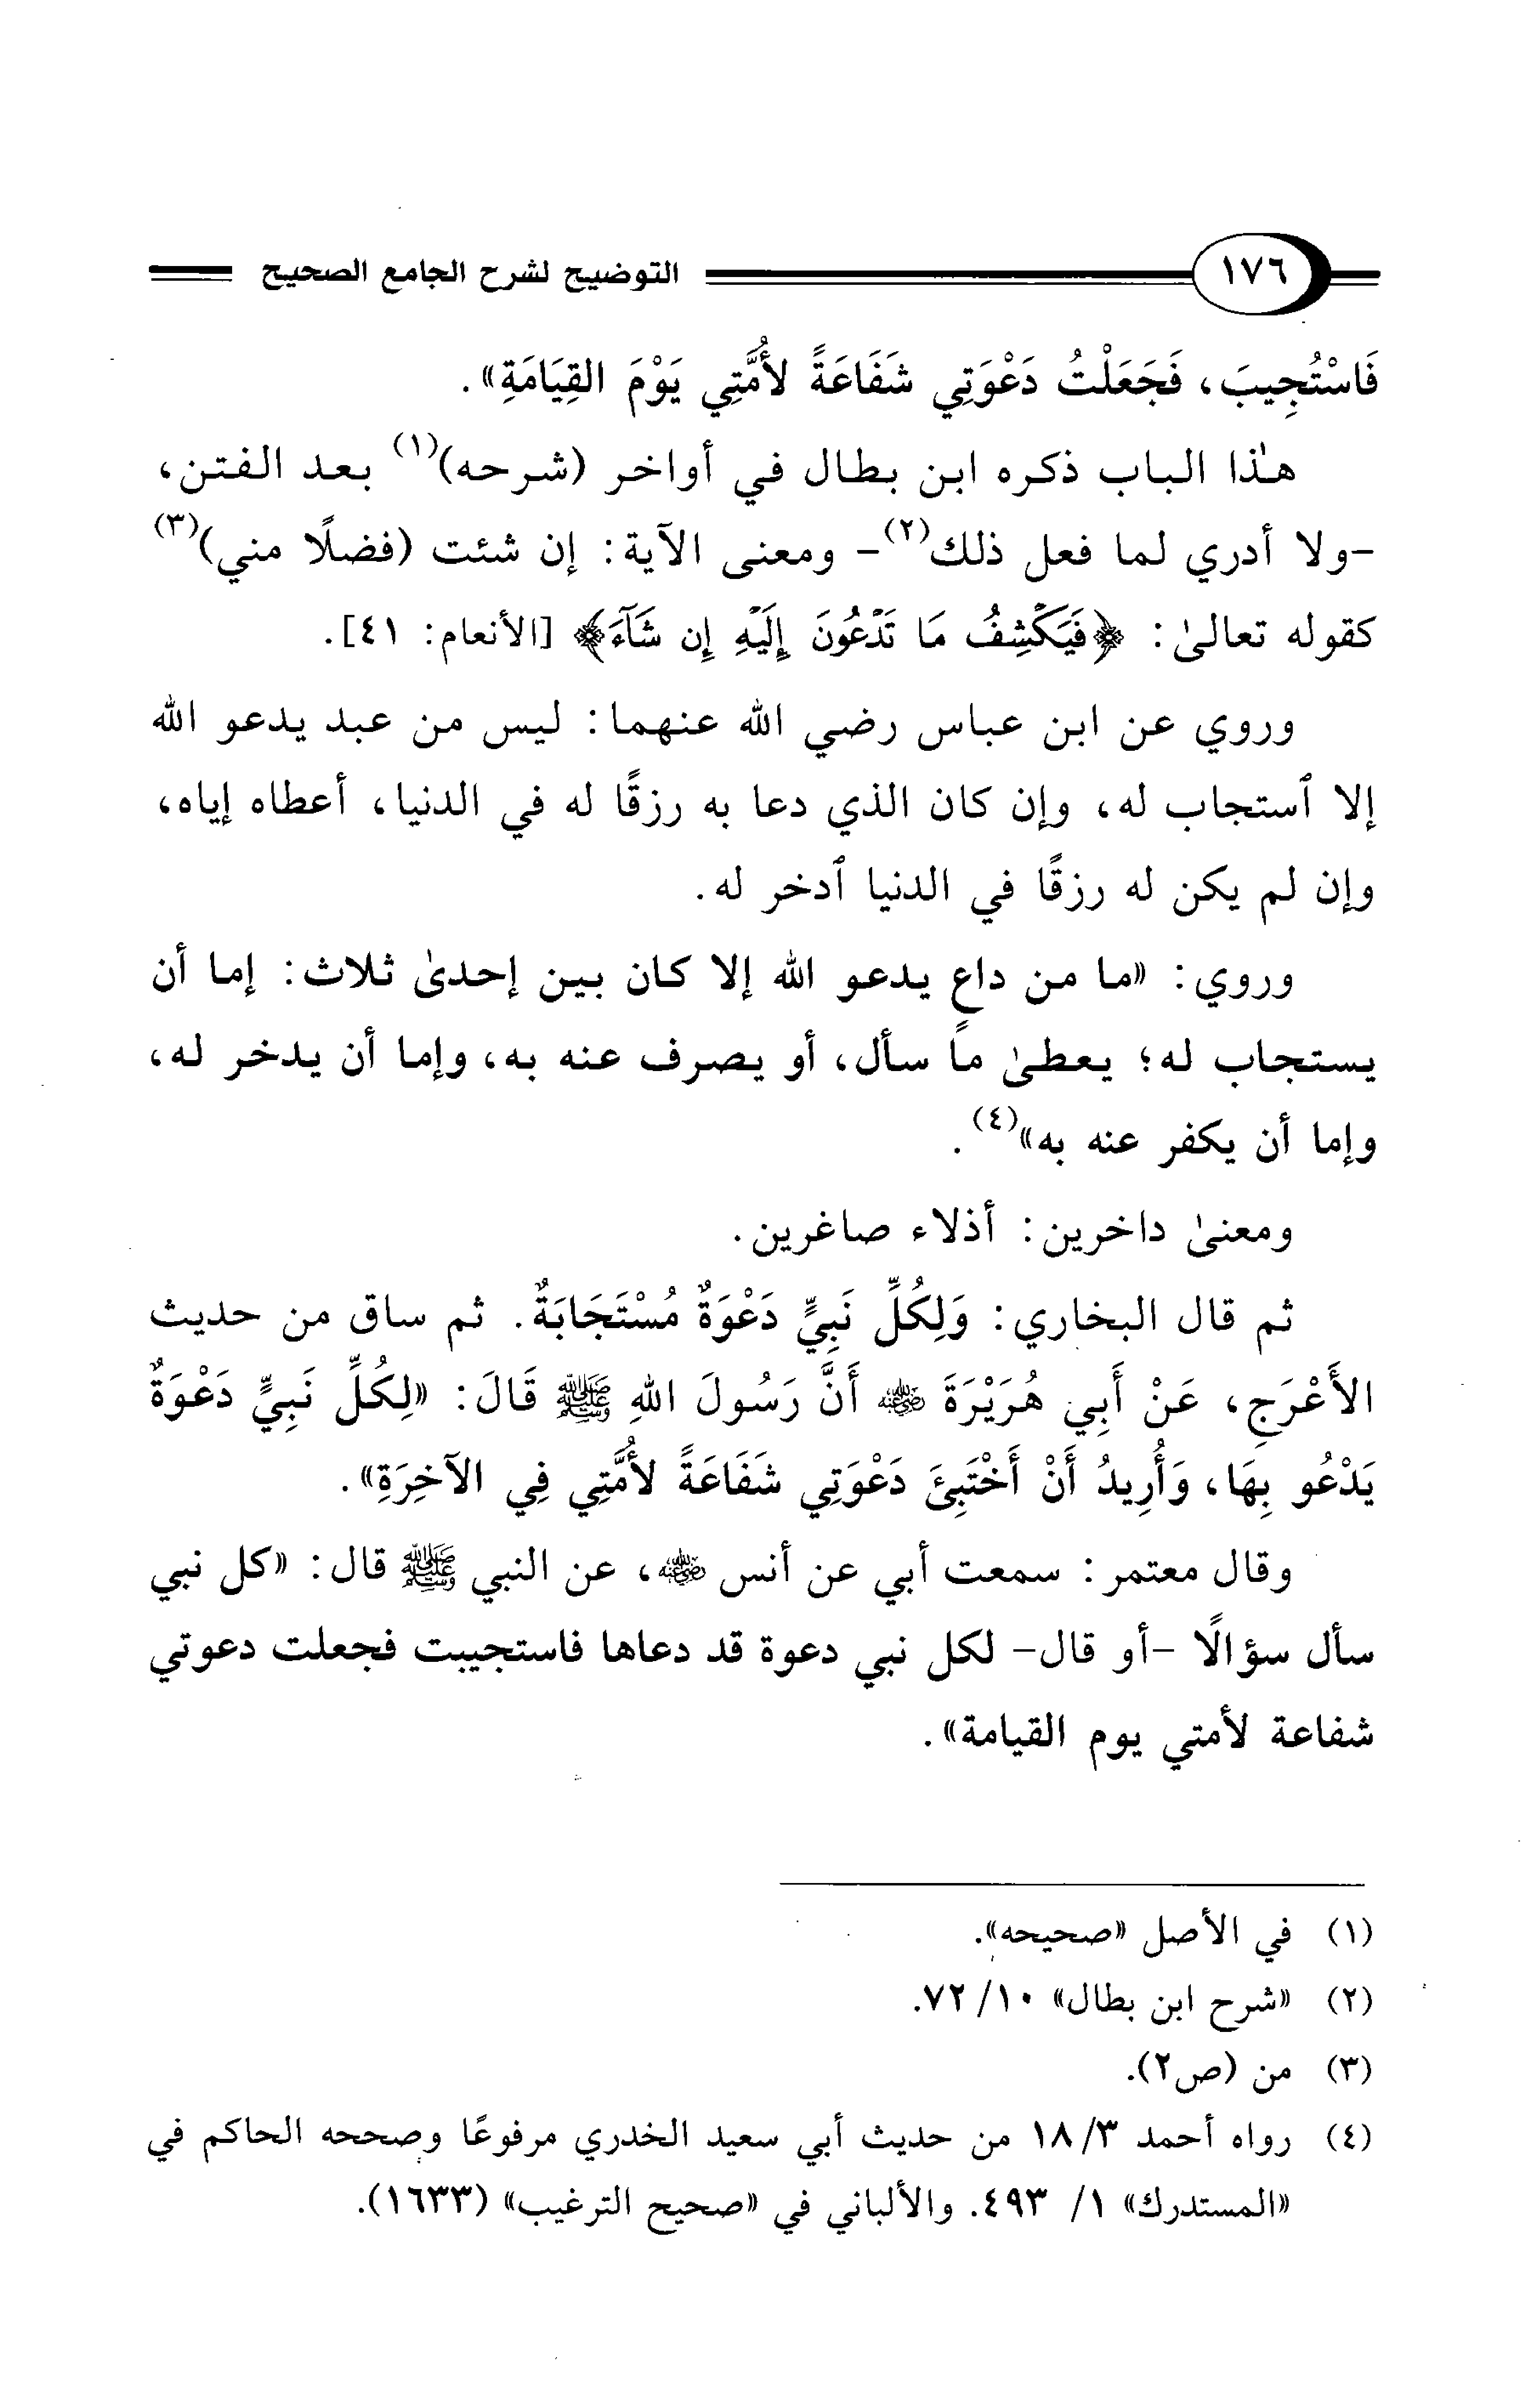 ١٧٦ التوضيح لشرح الجامع الصحيح
فَاسْتُجِيبَ، فَجَعَلْتُ دَعْوَتِي شَفَاعَةً لأُمَّتِي يَوْمَ القِيَامَةِ».
هذا الباب ذكره ابن بطال في أواخر (شرحه)(١) بعد الفتن،
-ولا أدري لما فعل ذلك(٢)- ومعنى الآية: إن شئت (فضلًا مني)(٣)
كقوله تعالىٰ: ﴿فَيَكْشِفُ مَا تَدْعُونَ إِلَيْهِ إِن شَآءَ﴾ [الأنعام: ٤١].
وروي عن ابن عباس رضي الله عنهما: ليس من عبد يدعو الله
إلا ٱستجاب له، وإن كان الذي دعا به رزقًا له في الدنيا، أعطاه إياه،
وإن لم يكن له رزقًا في الدنيا ٱدخر له.
وروي: «ما من داع يدعو الله إلا كان بين إحدىٰ ثلاث: إما أن
يستجاب له؛ يعطىٰ ما سأل، أو يصرف عنه به، وإما أن يدخر له،
وإما أن يكفر عنه به»(٤).
ومعنىٰ داخرين: أذلاء صاغرين.
ثم قال البخاري: وَلِكُلِّ نَبِيٍّ دَعْوَةٌ مُسْتَجَابَةٌ. ثم ساق من حديث
الأَعْرَجِ، عَنْ أَبِي هُرَيْرَةَ رضي الله عنه أَنَّ رَسُولَ اللهِ ﷺ قَالَ: «لِكُلِّ نَبِيٍّ دَعْوَةٌ
يَدْعُو بِهَا، وَأُرِيدُ أَنْ أَخْتَبِئَ دَعْوَتِي شَفَاعَةً لأُمَّتِي فِي الآخِرَةِ».
وقال معتمر: سمعت أبي عن أنس رضي الله عنه، عن النبي ﷺ قال: «كل نبي
سأل سؤالًا -أو قال- لكل نبي دعوة قد دعاها فاستجيبت فجعلت دعوتي
شفاعة لأمتي يوم القيامة».
(١) في الأصل «صحيحه».
(٢) «شرح ابن بطال» ١٠/ ٧٢.
(٣) من (ص٢).
(٤) رواه أحمد ٣/ ١٨ من حديث أبي سعيد الخدري مرفوعًا وصححه الحاكم في
«المستدرك» ١/ ٤٩٣. والألباني في «صحيح الترغيب» (١٦٣٣).